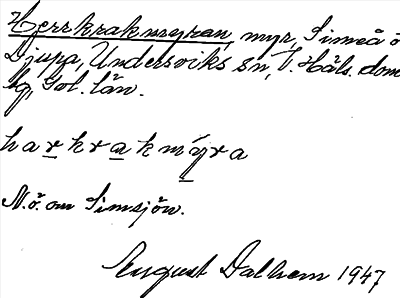 Herrkrakmyran, myr, Simeå o
Djupa, Undersviks sn, V. Häls. dom
sg, Gvl. län.
harkrakmýra
N.ö. om Simsjön.
August Dalhem 1947